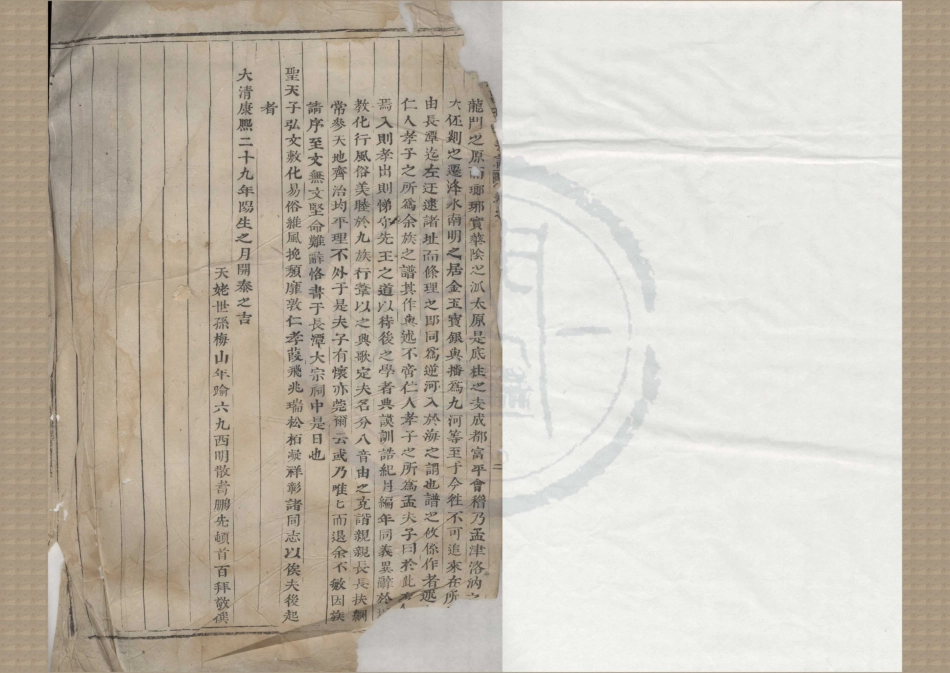 龍門之原而瑯琊實華陰之派太原是底柱之支成都富平會稽乃孟津洛汭之
大伾剡之遷洚水南明之居金玉寶銀與播為九河等至于今徃不可追來在所
由長潭迄左迂遠諸址而條理之即同為逆河入於海之謂也譜之攸係作者述
仁人孝子之所為余族之譜其作與述不啻仁人孝子之所為孟夫子曰於此有
焉入則孝出則悌守先王之道以待後之學者典謨訓誥紀月編年同義異辭於
教化行風俗美睦於九族行葦以之興歌定夫名分八音由之克諧親親長長扶綱
常參天地齊治均平理不外于是夫子有懷亦莞爾云或乃唯匕而退余不敏因族
請序至文無文堅命難辭恪書于長潭大宗祠中是日也
聖天子弘文敷化易俗維風挽頹靡敦仁孝葭飛兆瑞松柏凝祥彰諸同志以俟夫後起
者
大清康熈二十九年陽生之月開泰之吉
天姥世孫梅山年踰六九西明散耆鵬先頓首百拜敬僎